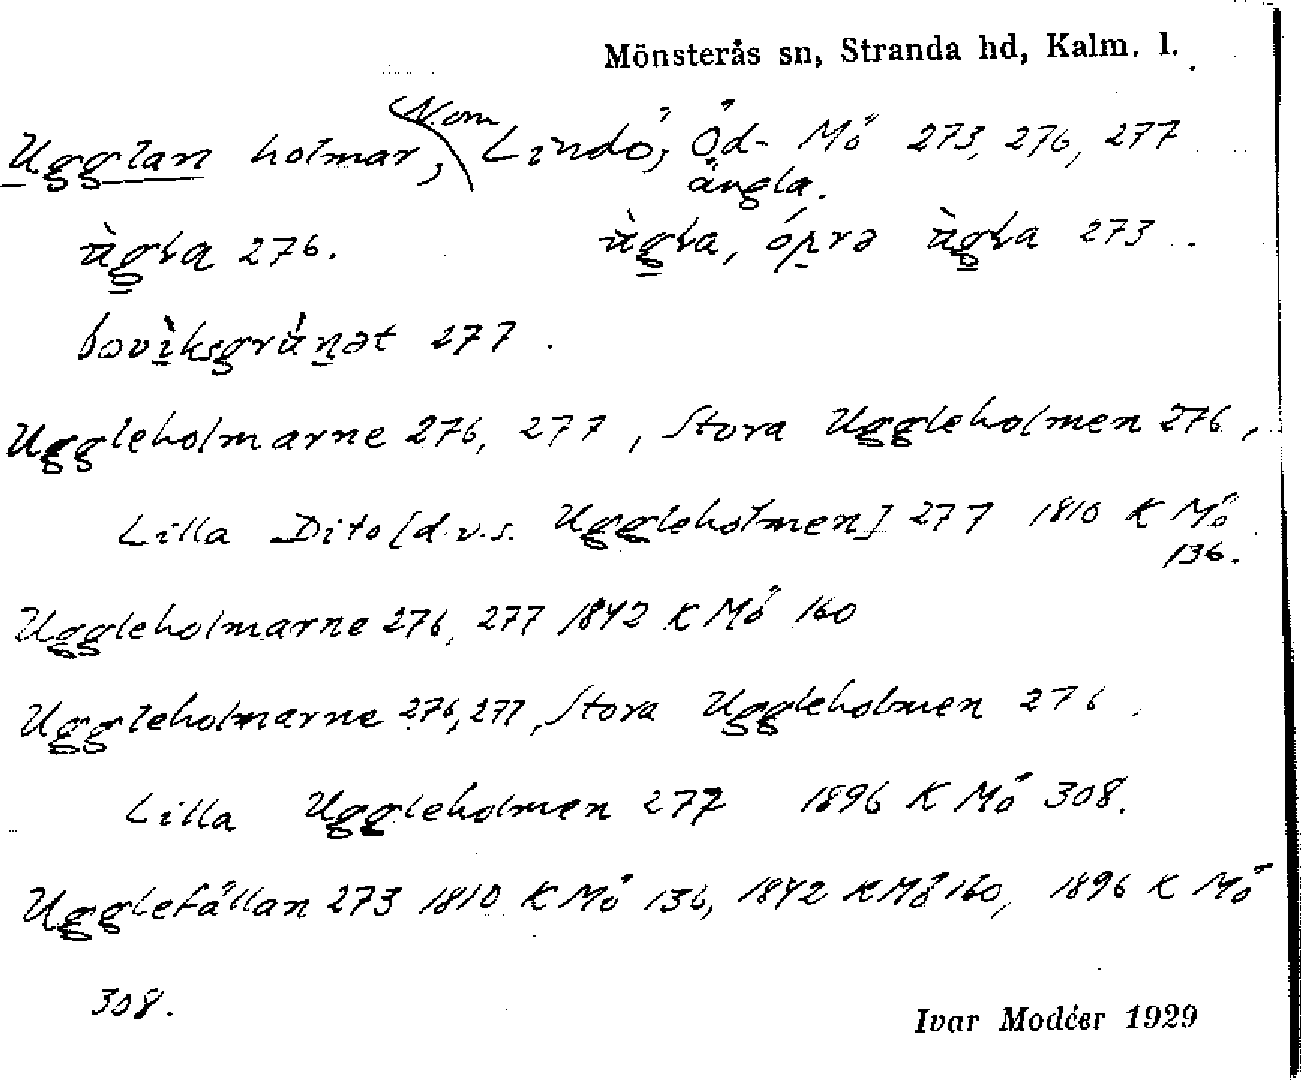 Mönsterås sn, Stranda hd, Kalm. l.
Ugglan holmar, N. om Lindö, Öd- Mö 273, 276, 277
ängla.
ùgla 276. ùgla, óprə ùgla 273
bovìksgrúnət 277.
Uggleholmarne 276, 277, Stora Uggleholmen 276,
Lilla Dito [d.v.s. Uggleholmen] 277 1810 K Mö
136.
Uggleholmarne 276, 277 1842 K Mö 160
Uggleholmarne 276, 277, Stora Uggleholmen 276.
Lilla Uggleholmen 277 1896 K Mö 308.
Ugglefållan 273 1810 K Mö 136, 1842 K Mö 160, 1896 K Mö
308.
Ivar Modéer 1929